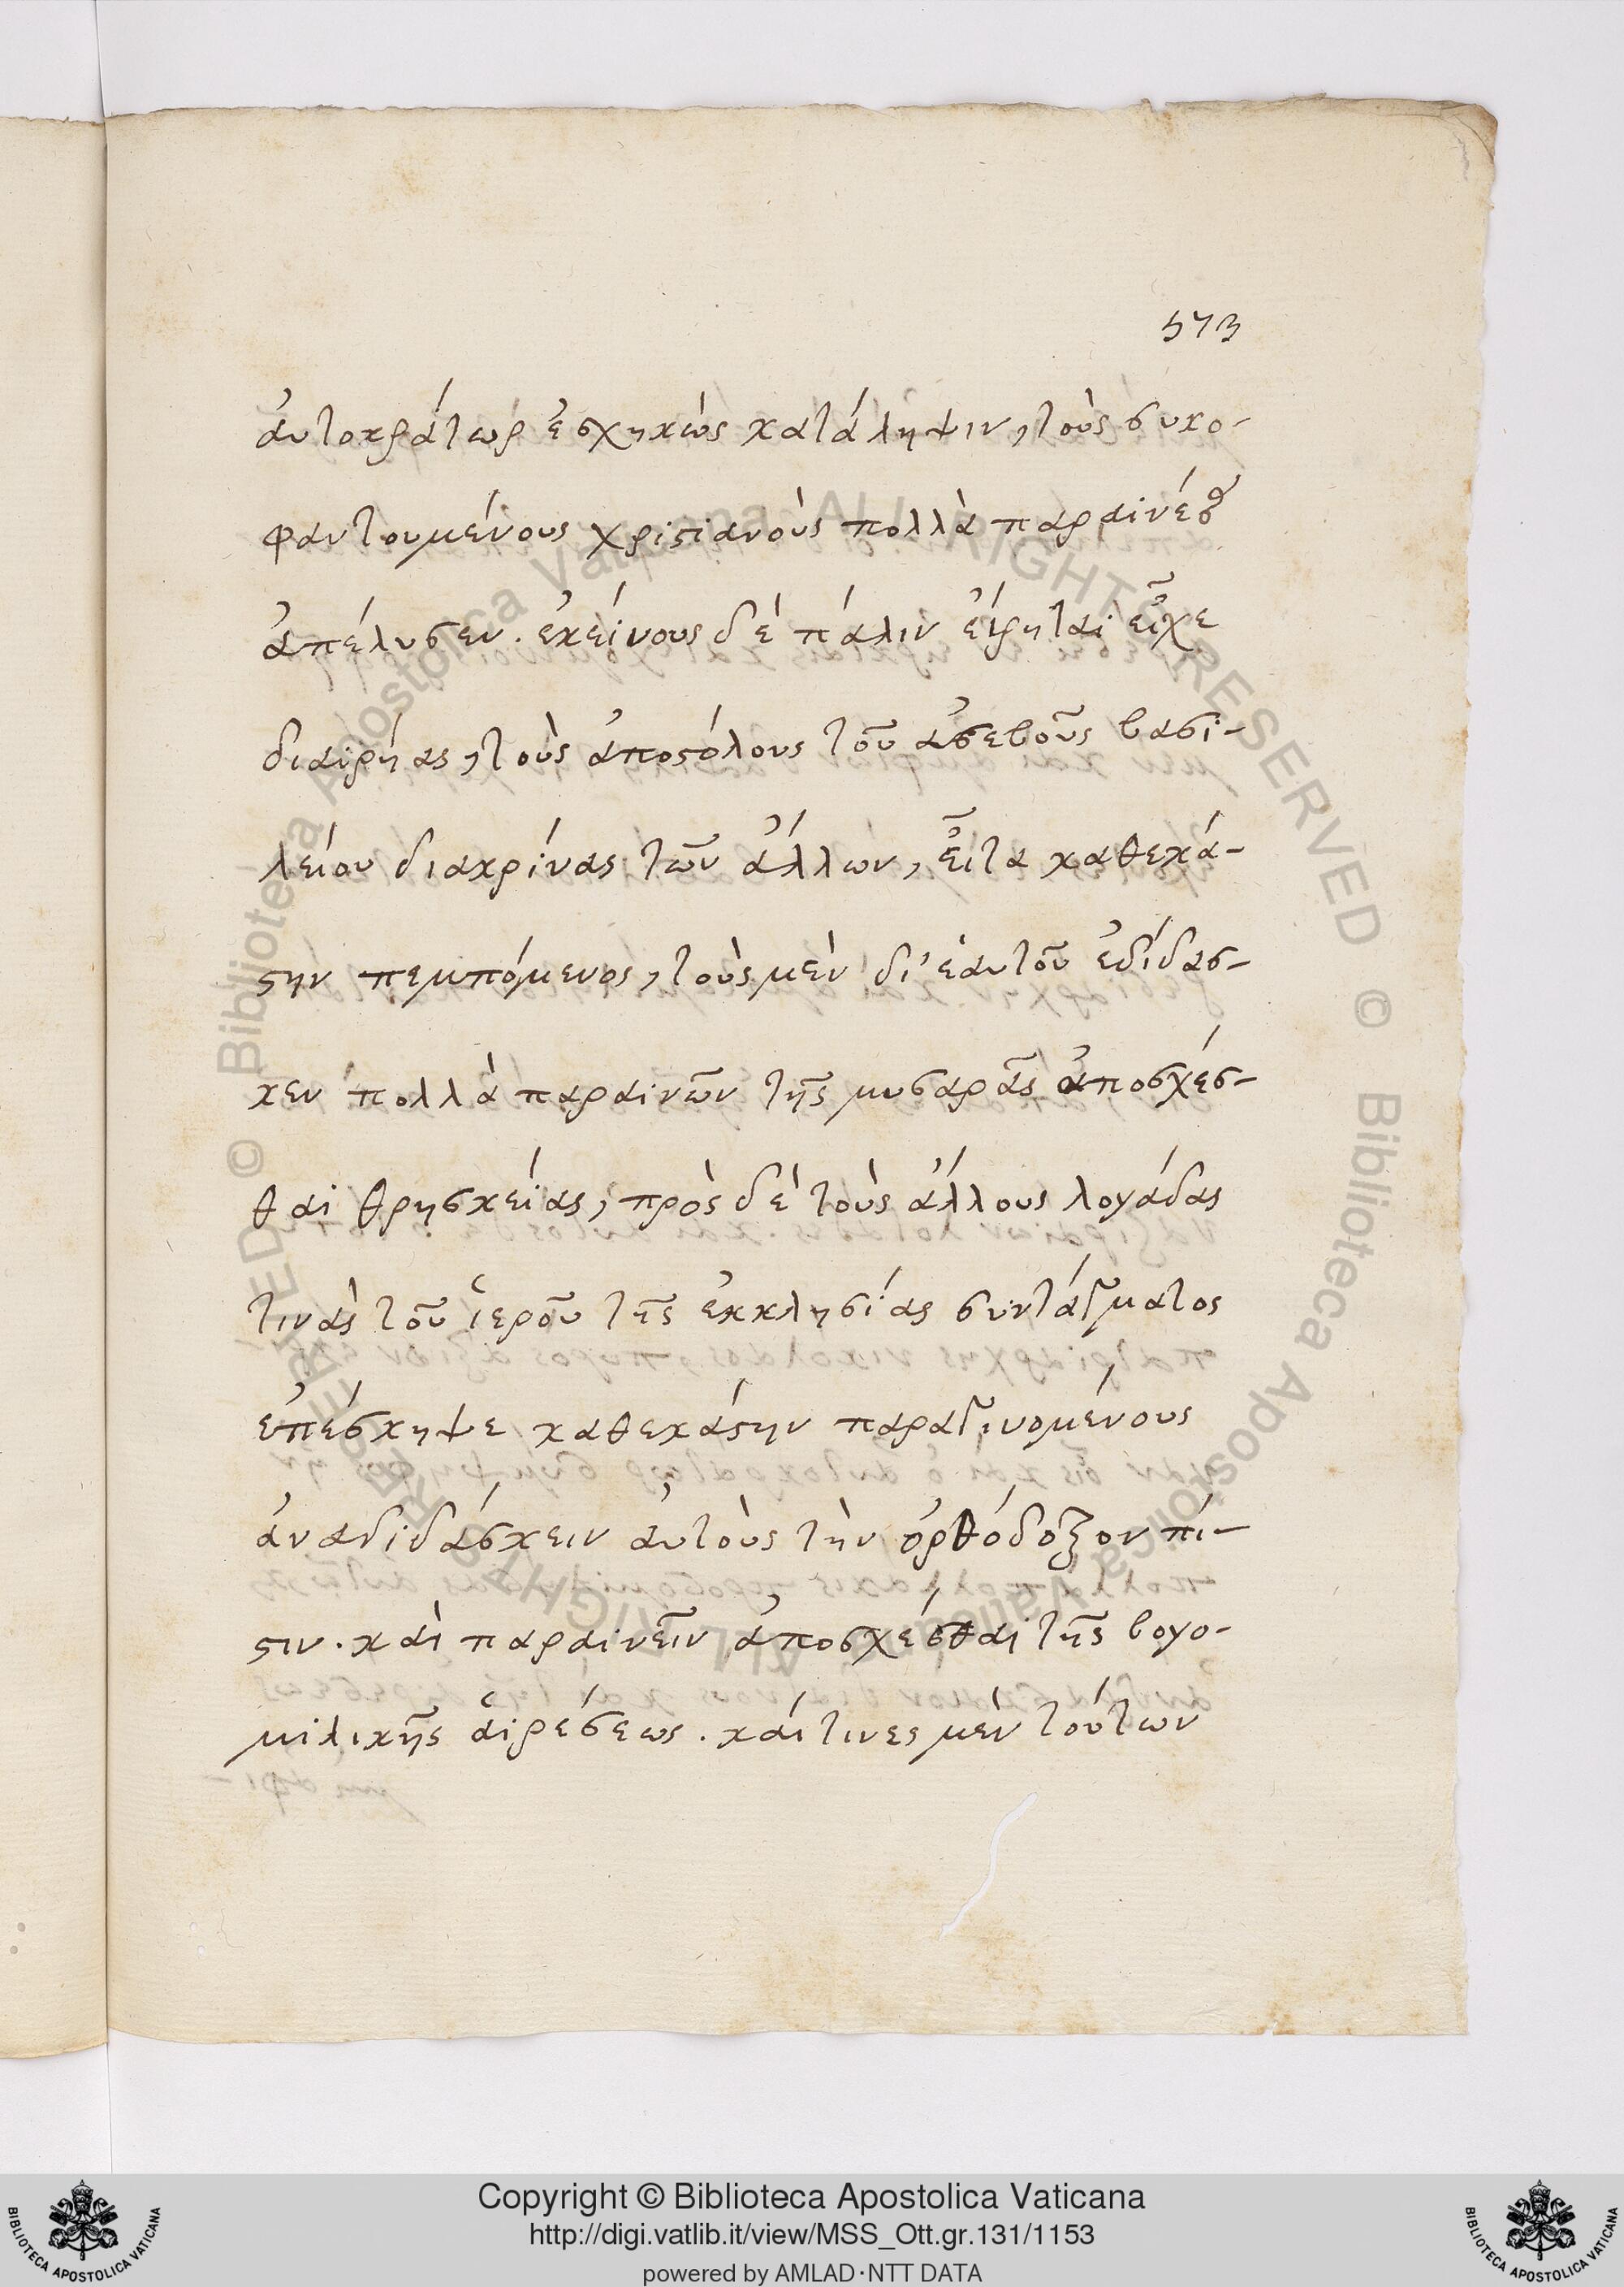 573
ἀυτοκράτωρ ἐσχηκὼς κατάληψιν, τοὺς συκο-
φαντουμένους χριστιανοὺς πολλὰ παραινέσ
ἀπέλυσεν. ἐκείνους δὲ πάλιν
διαιρήας, τοὺς ἀποστόλους τοῦ ἀσεβοῦς βασι-
λείου διακρίνας τῶν ἄλλων, εἶτα καθεκά-
στην πεμπόμενος, τοὺς μὲν δι' ἑαυτοῦ ἐδίδασ-
κεν πολλὰ παραινῶν τῆς μυσαρᾶς ἀποσχέσ-
θαι θρησκείας, πρὸς δὲ τοὺς ἄλλους λογάδας
τινὰς τοῦ ἱεροῦ τῆς ἐκκλησίας συντάγματος
ἐπέσκηψε καθεκάστην παραγινομένους
ἀναδιδάσκειν ἀυτοὺς τὴν ὀρθόδοξον πί-
στιν. καὶ παραινεῖν ἀποσχέσθαι τῆς βογο-
μιλικῆς αἱρέσεως. καίτινες μὲν τούτων
Copyright © Biblioteca Apostolica Vaticana
http://digi.vatlib.it/view/MSS_Ott.gr.131/1153
powered by AMLAD·NTT DATA